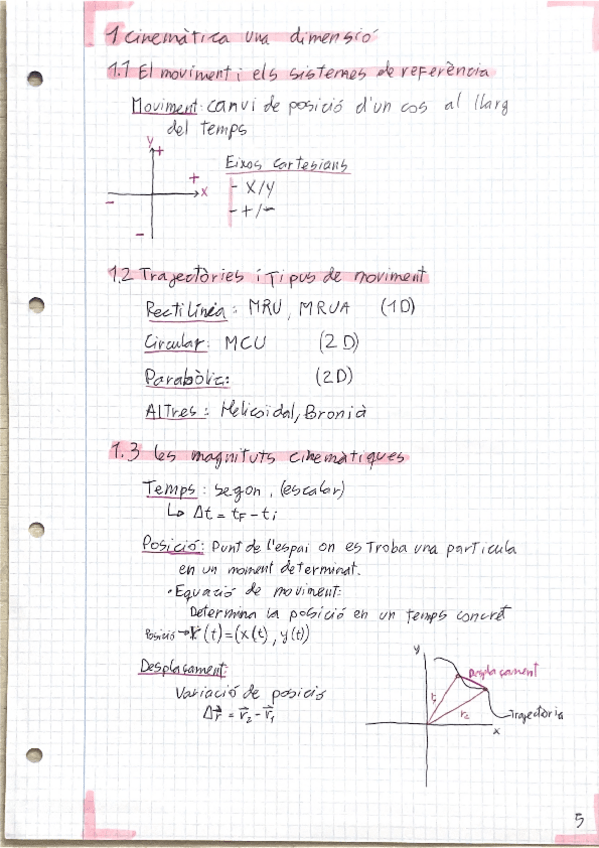 1 Cinemàtica una dimensió
1.1 El moviment i els sistemes de referència
Moviment: canvi de posició d'un cos al llarg
del temps
y +
Eixos cartesians
+ x
- X/Y
-
- +/-
-
1.2 Trajectòries i Tipus de moviment
Rectilínea: MRU, MRUA (1D)
Circular: MCU (2D)
Parabòlic: (2D)
Altres: Helicoidal, Bronià
1.3 les magnituts cinemàtiques
Temps: segon, (escalar)
↳ Δt = tF - ti
Posició: Punt de l'espai on es troba una particula
en un moment determinat.
• Equació de moviment:
Determina la posició en un temps concret
Posició → r⃗(t) = (x(t), y(t))
Desplaçament:
Variació de posició
Δr⃗ = r⃗2 - r⃗1
y
Desplaçament
r1
r2
Trajectòria
x
5